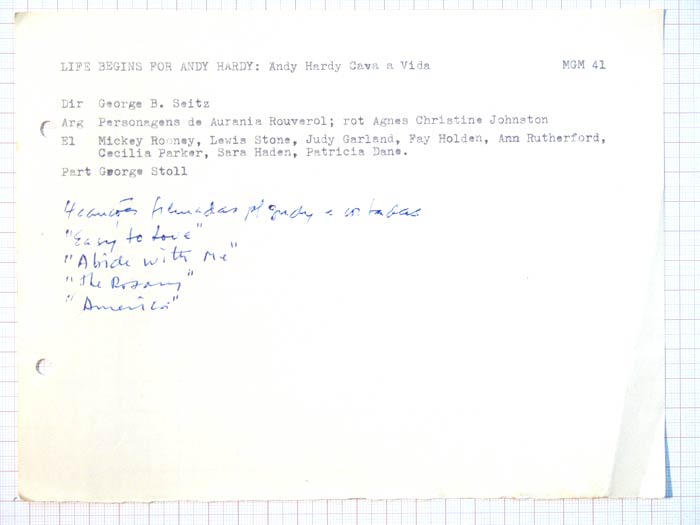 LIFE BEGINS FOR ANDY HARDY: Andy Hardy Cava a Vida MGM 41
Dir George B. Seitz
Arg Personagens de Aurania Rouverol; rot Agnes Christine Johnston
El Mickey Rooney, Lewis Stone, Judy Garland, Fay Holden, Ann Rutherford,
Cecilia Parker, Sara Haden, Patricia Dane.
Part George Stoll
4 canções filmadas p/ Judy e cortadas
"Easy to Love"
"Abide with Me"
"The Rosary"
"America"